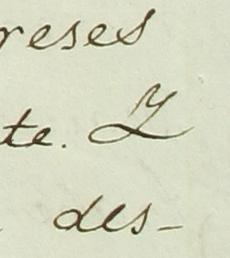 reses
te. Z
des-